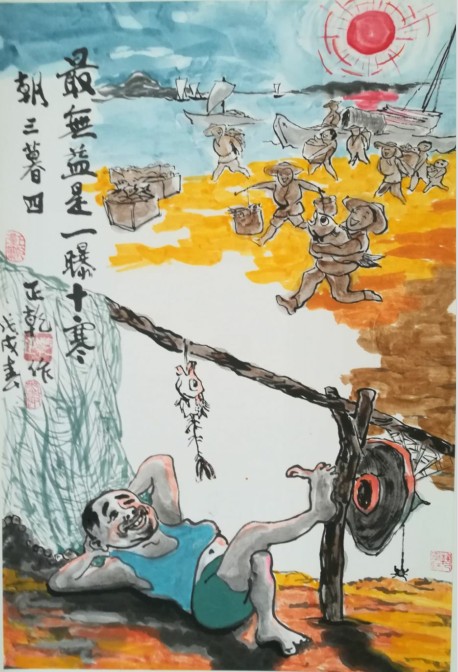 最無益是一曝十寒
朝三暮四
正乾作
戊戌春